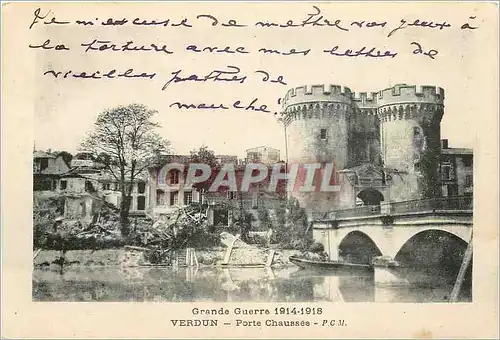 Je m'excuse de mettre vos yeux à
la torture avec mes lettres de
vieilles pattes de
mouche.
CPARAMA.COM
Grande Guerre 1914-1918
VERDUN — Porte Chaussée - P.C.M.